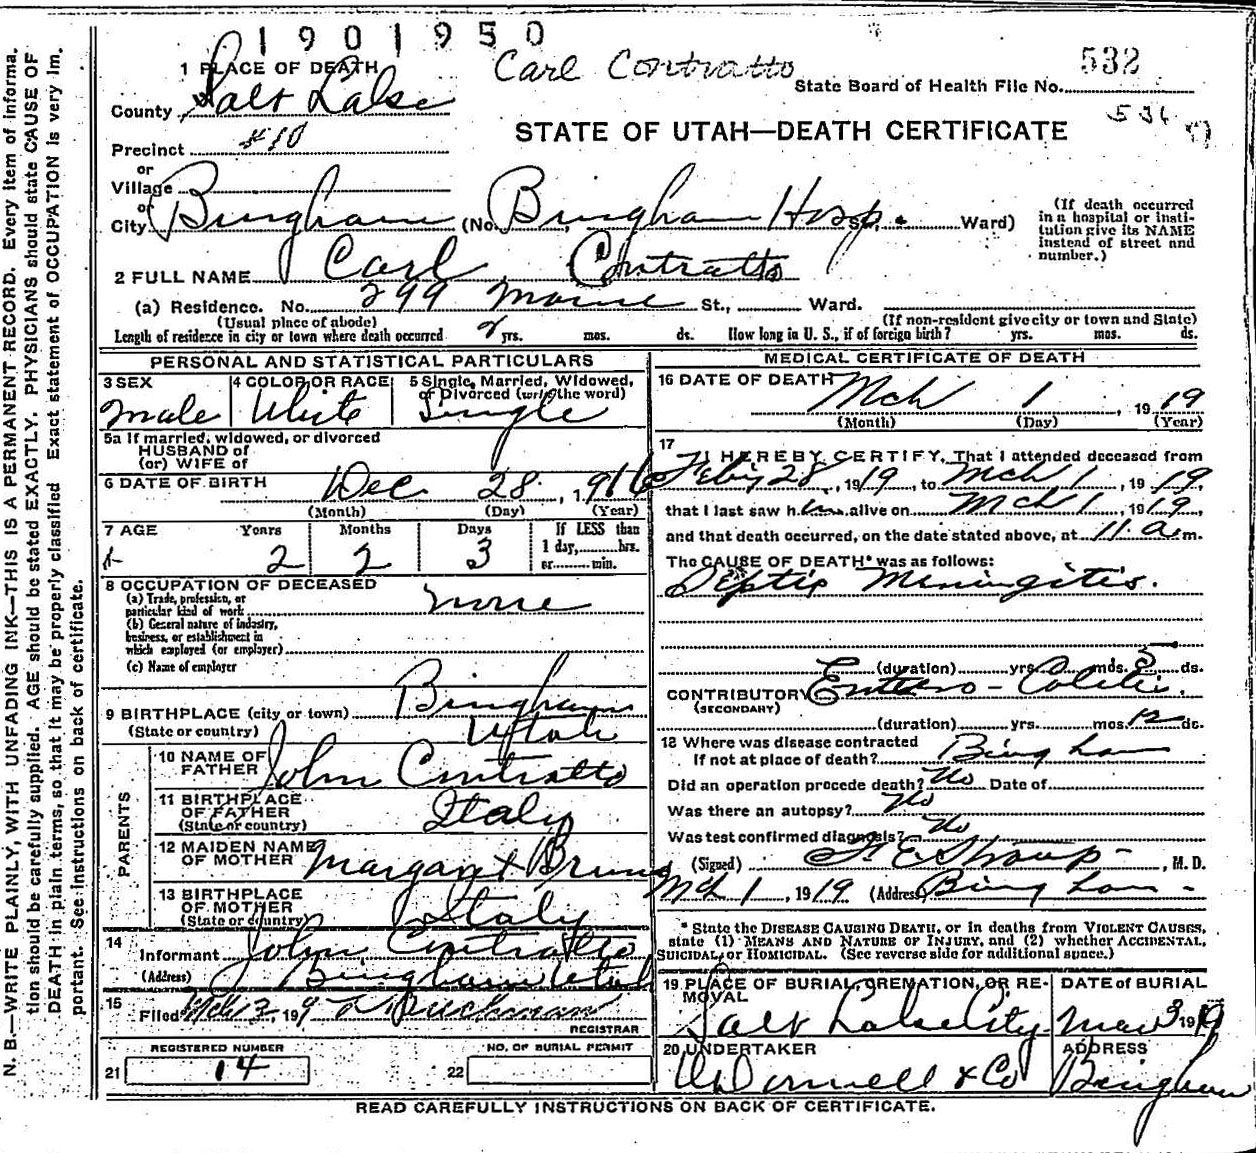 1901950
Carl Contratto
532
State Board of Health File No.
536
STATE OF UTAH—DEATH CERTIFICATE
1 PLACE OF DEATH
County Salt Lake
Precinct #10
or
Village
or
City Bingham (No. Bingham Hosp. St., Ward)
(If death occurred in a hospital or insti-
tution give its NAME
instead of street and
number.)
2 FULL NAME Carl Contratto
(a) Residence. No. 299 Maine St., Ward.
(Usual place of abode) (If non-resident give city or town and State)
Length of residence in city or town where death occurred 2 yrs. mos. ds. How long in U. S., if of foreign birth? yrs. mos. ds.
PERSONAL AND STATISTICAL PARTICULARS
3 SEX
Male
4 COLOR OR RACE
White
5 Single, Married, Widowed,
or Divorced (write the word)
Single
5a If married, widowed, or divorced
HUSBAND of
(or) WIFE of
6 DATE OF BIRTH Dec 28, 1916
(Month) (Day) (Year)
7 AGE Years Months Days If LESS than
2 2 3 1 day,.....hrs.
or.....min.
8 OCCUPATION OF DECEASED
(a) Trade, profession, or
particular kind of work none
(b) General nature of industry,
business, or establishment in
which employed (or employer)
(c) Name of employer
9 BIRTHPLACE (city or town) Bingham
(State or country) Utah
PARENTS
10 NAME OF
FATHER John Contratto
11 BIRTHPLACE
OF FATHER Italy
(State or country)
12 MAIDEN NAME
OF MOTHER Margaret Bruno
13 BIRTHPLACE
OF MOTHER Italy
(State or country)
14
Informant John Contratto
(Address) Bingham Utah
15
Filed Mch 3, 1919
REGISTRAR
REGISTERED NUMBER NO. OF BURIAL PERMIT
21 14 22
MEDICAL CERTIFICATE OF DEATH
16 DATE OF DEATH Mch 1, 1919
(Month) (Day) (Year)
17 I HEREBY CERTIFY, That I attended deceased from
Feby 28, 1919, to Mch 1, 1919,
that I last saw him alive on Mch 1, 1919,
and that death occurred, on the date stated above, at 11 a.m.
The CAUSE OF DEATH* was as follows:
Septic Meningitis.
(duration) yrs. mos. 5 ds.
CONTRIBUTORY Entero-Colitis.
(SECONDARY)
(duration) yrs. mos. 12 ds.
18 Where was disease contracted
If not at place of death? Bingham
Did an operation precede death? No Date of
Was there an autopsy? No
Was test confirmed diagnosis? No
(Signed) F. E. Straup, M. D.
Mch 1, 1919 (Address) Bingham
* State the DISEASE CAUSING DEATH, or in deaths from VIOLENT CAUSES,
state (1) MEANS AND NATURE OF INJURY, and (2) whether ACCIDENTAL,
SUICIDAL, or HOMICIDAL. (See reverse side for additional space.)
19 PLACE OF BURIAL, CREMATION, OR RE-
MOVAL
Salt Lake City
DATE of BURIAL
Mar 3 1919
20 UNDERTAKER
O'Donnell & Co
ADDRESS
Bingham
READ CAREFULLY INSTRUCTIONS ON BACK OF CERTIFICATE.
N. B.—WRITE PLAINLY, WITH UNFADING INK—THIS IS A PERMANENT RECORD. Every item of informa-
tion should be carefully supplied. AGE should be stated EXACTLY. PHYSICIANS should state CAUSE OF
DEATH in plain terms, so that it may be properly classified Exact statement of OCCUPATION is very im-
portant. See instructions on back of certificate.